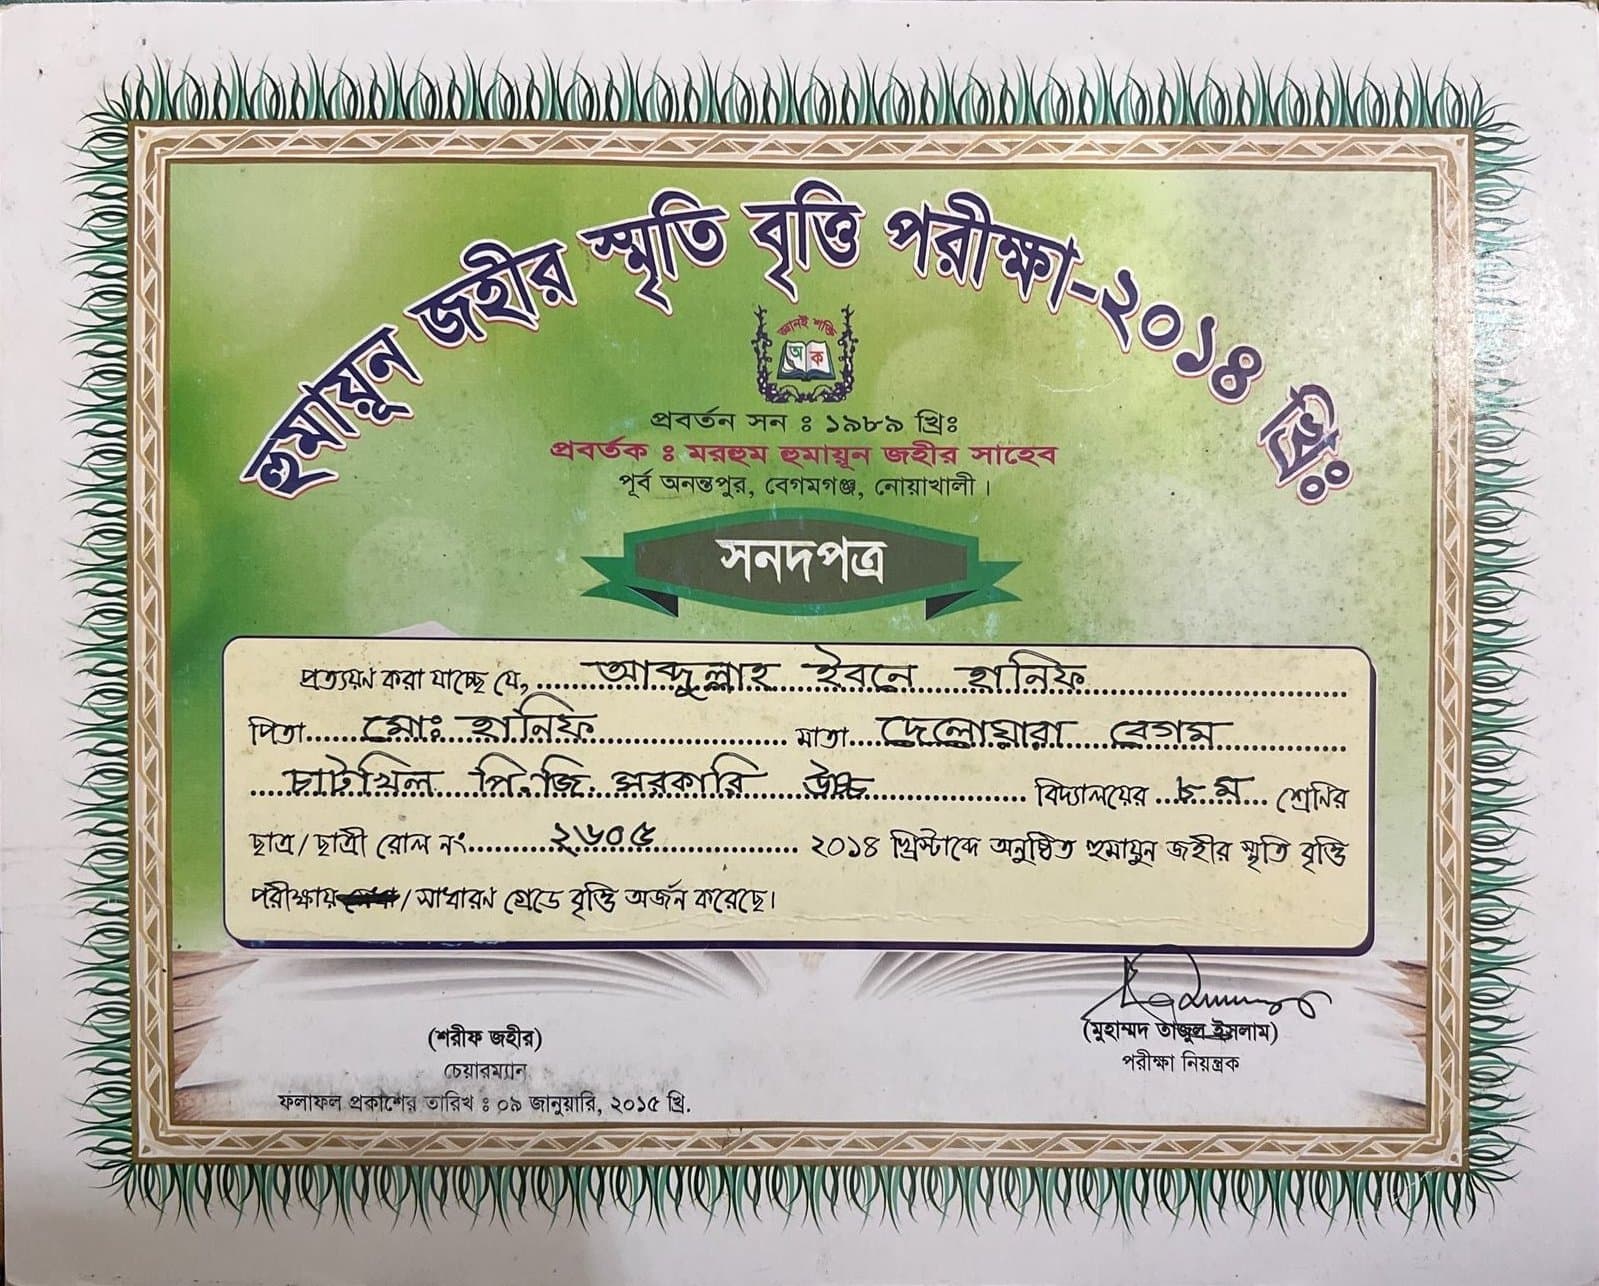 হুমায়ূন জহীর স্মৃতি বৃত্তি পরীক্ষা-২০১৪ খ্রিঃ
জ্ঞানই শক্তি
অ ক
প্রবর্তন সন ঃ ১৯৮৯ খ্রিঃ
প্রবর্তক ঃ মরহুম হুমায়ূন জহীর সাহেব
পূর্ব অনন্তপুর, বেগমগঞ্জ, নোয়াখালী।
সনদপত্র
প্রত্যয়ণ করা যাচ্ছে যে, আব্দুল্লাহ ইবনে হানিফ
পিতা মোঃ হানিফ মাতা দেলোয়ারা বেগম
চাটখিল পি.জি. সরকারি উচ্চ বিদ্যালয়ের ৮ম শ্রেণির
ছাত্র/ছাত্রী রোল নং ২৬০৫ ২০১৪ খ্রিস্টাব্দে অনুষ্ঠিত হুমায়ুন জহীর স্মৃতি বৃত্তি
পরীক্ষায় / সাধারণ গ্রেডে বৃত্তি অর্জন করেছে।
(শরীফ জহীর)
চেয়ারম্যান
(মুহাম্মদ তাজুল ইসলাম)
পরীক্ষা নিয়ন্ত্রক
ফলাফল প্রকাশের তারিখ ঃ ০৯ জানুয়ারি, ২০১৫ খ্রি.